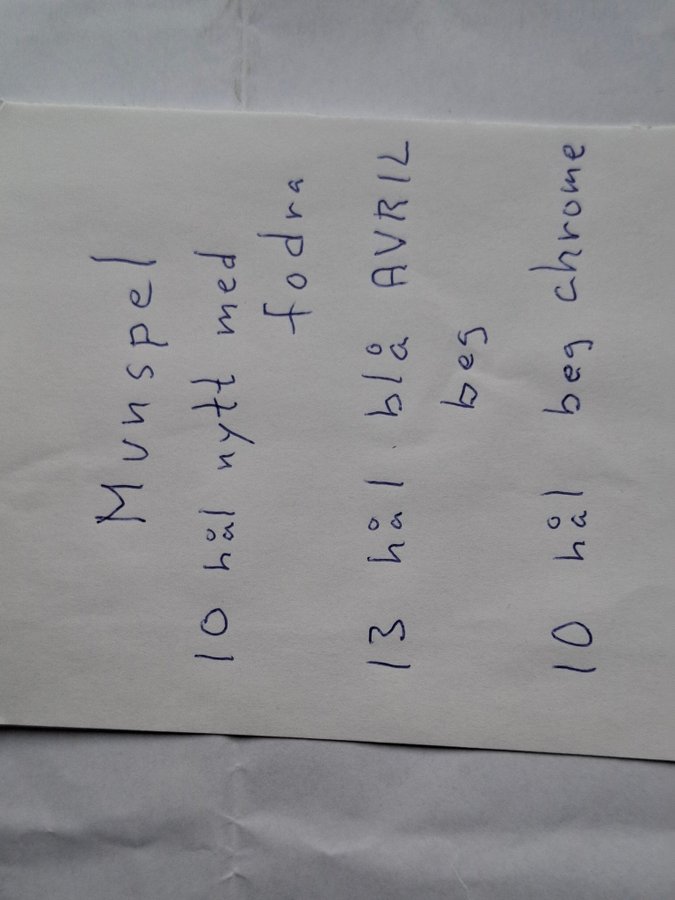 Munspel
10 hål nytt med
fodra
13 hål blå AVRIL
beg
10 hål beg chrome